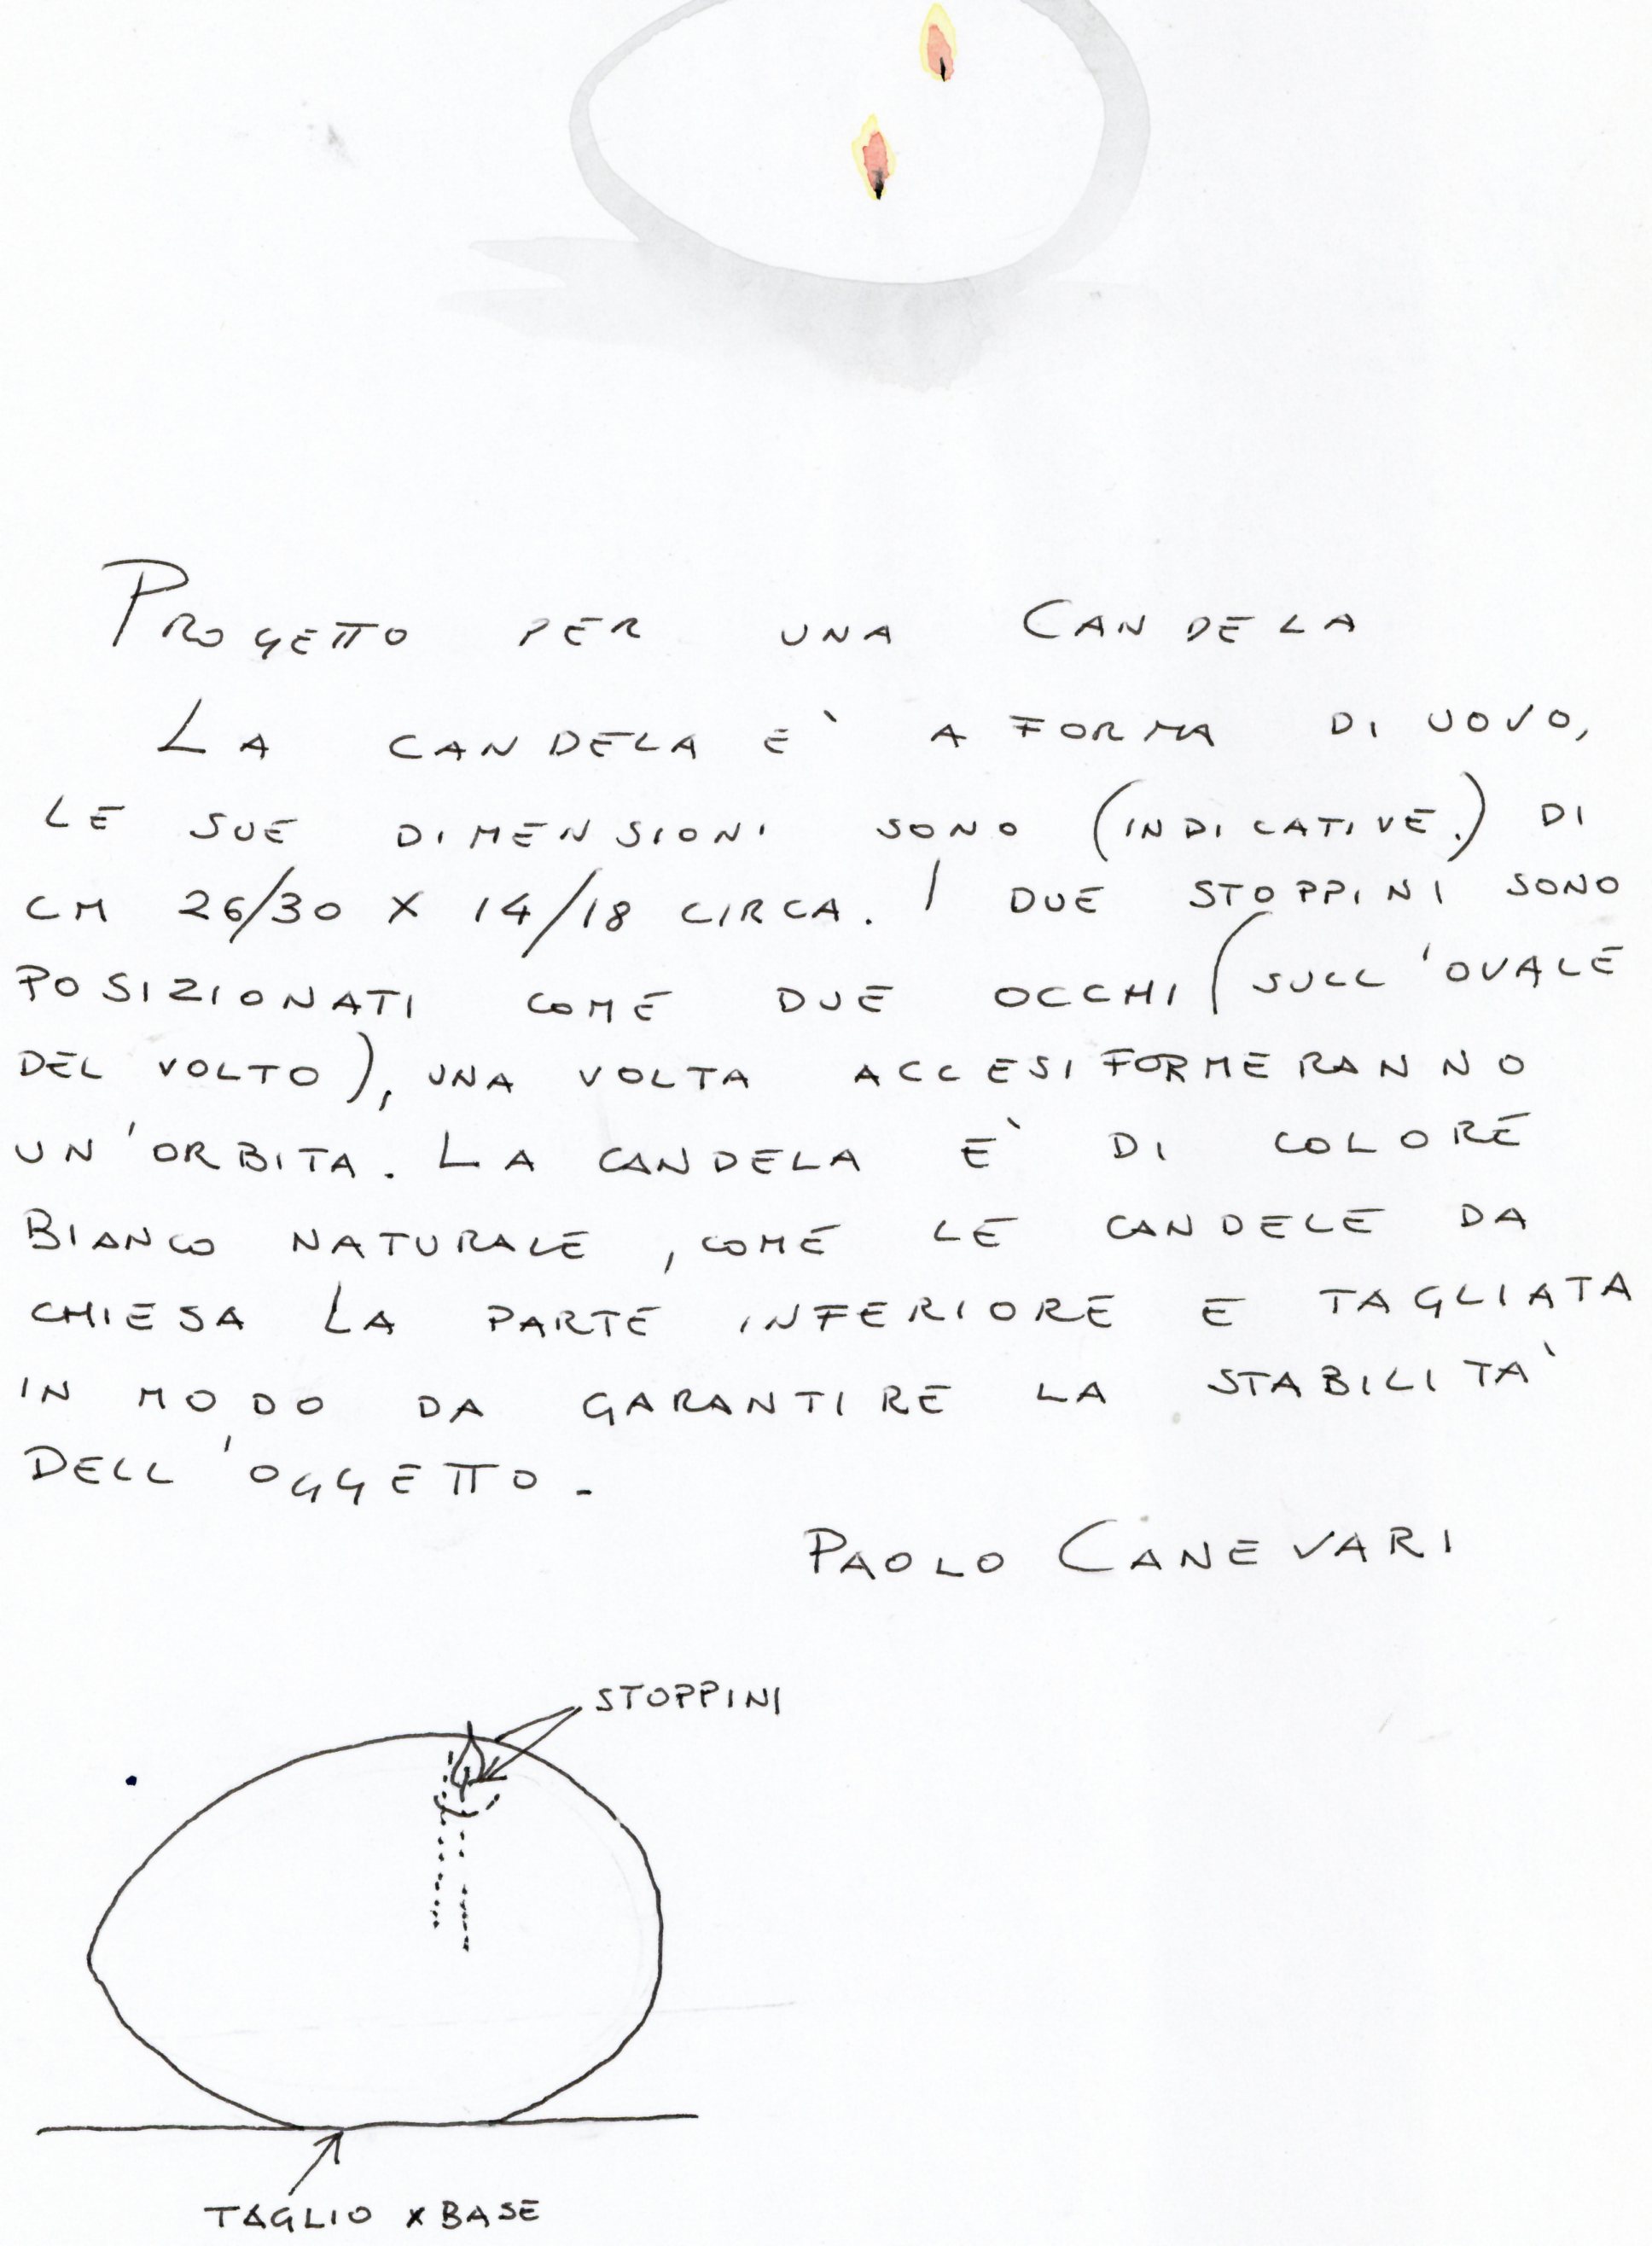 PROGETTO PER UNA CANDELA
LA CANDELA E` A FORMA DI UOVO,
LE SUE DIMENSIONI SONO (INDICATIVE.) DI
CM 26/30 X 14/18 CIRCA. I DUE STOPPINI SONO
POSIZIONATI COME DUE OCCHI (SULL'OVALE
DEL VOLTO), UNA VOLTA ACCESI FORMERANNO
UN'ORBITA. LA CANDELA E` DI COLORE
BIANCO NATURALE, COME LE CANDELE DA
CHIESA LA PARTE INFERIORE E TAGLIATA
IN MODO DA GARANTIRE LA STABILITA`
DELL'OGGETTO.-
PAOLO CANEVARI
STOPPINI
TAGLIO X BASE